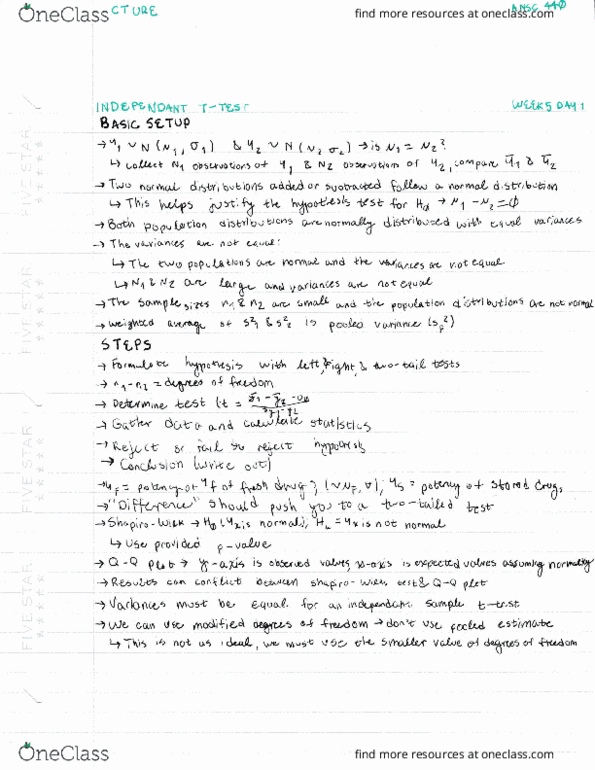 OneClass
CTURE
find more resources at oneclass.com
ANSC 440
INDEPENDANT T-TEST
WEEK 5 DAY 1
BASIC SETUP
→ y₁ ∼ N(μ₁, σ₁) & y₂ ∼ N(μ₂ σ₂) → is μ₁ = μ₂?
↳ collect n₁ observations of y₁ & n₂ observations of y₂, compare ȳ₁ & ȳ₂
→ Two normal distributions added or subtracted follow a normal distribution
↳ This helps justify the hypothesis test for H∅ → μ₁ - μ₂ = ∅
→ Both population distributions are normally distributed with equal variances
→ The variances are not equal:
↳ The two populations are normal and the variances are not equal
↳ n₁ & n₂ are large and variances are not equal
→ The sample sizes n₁ & n₂ are small and the population distributions are not normal
→ weighted average of s²₁ & s²₂ is pooled variance (sₚ²)
STEPS
→ Formulate hypothesis with left, right, & two-tail tests
→ n₁-n₂ = degrees of freedom
→ Determine test (t =
→ Gather data and calculate statistics
→ Reject or fail to reject hypothesis
→ Conclusion (write out)
→ = potency of fresh drug = potency of stored drug,
→ "Difference" should push you to a two-tailed test
→ Shapiro-Wilk → is normal, is not normal
↳ Use provided p-value
→ Q-Q plot → y-axis is observed values, x-axis is expected values assuming normality
→ Results can conflict between shapiro-wilk test & Q-Q plot
→ Variances must be equal for an independent sample t-test
→ We can use modified degrees of freedom → don't use pooled estimate
↳ This is not as ideal, we must use the smaller value of degrees of freedom
FIVE STAR
FIVE STAR
FIVE STAR
FIVE STAR
OneClass
find more resources at oneclass.com